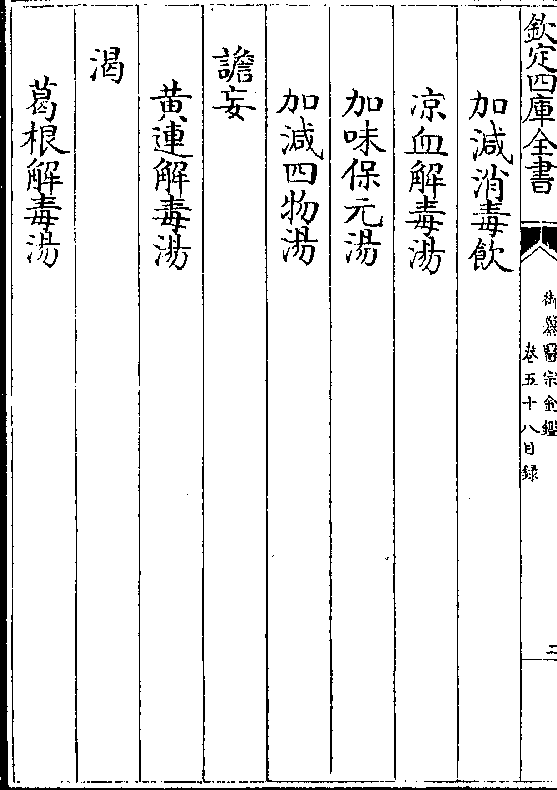 欽定四庫全書
御纂醫宗金鑑
卷五十八目錄
二
加減消毒飲
凉血解毒湯
加味保元湯
加減四物湯
譫妄
黄連解毒湯
渴
葛根解毒湯